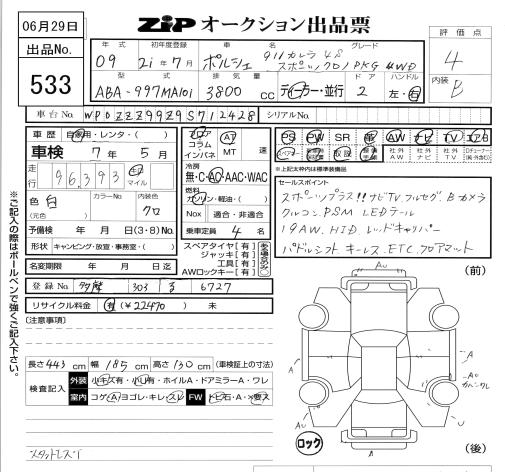 06月29日
ZIP オークション出品票
評価点
4
出品No.
533
年式 初年度登録 車名 グレード
09 21年7月 ポルシェ 911カレラ 4S
スポーツクロノPKG 4WD
型式 排気量 ドア ハンドル
ABA-997MA101 3800 cc ディーラー・並行 2 左・右
内装 B
車台No. WP0ZZZ99Z9S712428 シリアルNo.
車歴 自家用・レンタ・( )
車検 7年5月
走行 96,393 キロ マイル
色 白 (元色) カラーNo. 内装色 クロ
予備検 年 月 日(3・8)No.
形状 キャンピング・放宣・事務室・( )
名変期限 年 月 日迄
フロア コラム インパネ AT MT 速
冷房 無・C・AC・AAC・WAC
燃料 ガソリン・軽油・( )
Nox 適合・非適合
乗車定員 4 名
スペアタイヤ[有]
ジャッキ[有]
工具[有]
AWロックキー[有]
PS PW SR 革 AW ナビ TV エアB
社外AW 社外ナビ 社外TV
※上記太枠内は標準装備品
セールスポイント
スポーツプラス!!ナビTVフルセグ.Bカメラ
クルコン.PSM LEDテール
19AW.HID.レッドキャリパー
パドルシフト キーレス.ETC.フロアマット
登録No. 多摩 303 ろ 6727
リサイクル料金 有(¥22470) 未
(注意事項)
長さ443cm 幅185cm 高さ130cm (車検証上の寸法)
検査記入 外装 小キズ有・小凹有・ホイルA・ドアミラーA・ワレ
室内 コゲA・ヨゴレ・キレ・スレ FW トビ石・A・×要ス
スタットレスT
※ご記入の際はボールペンで強くご記入下さい。
(前)
A
A
A
ロック
(後)